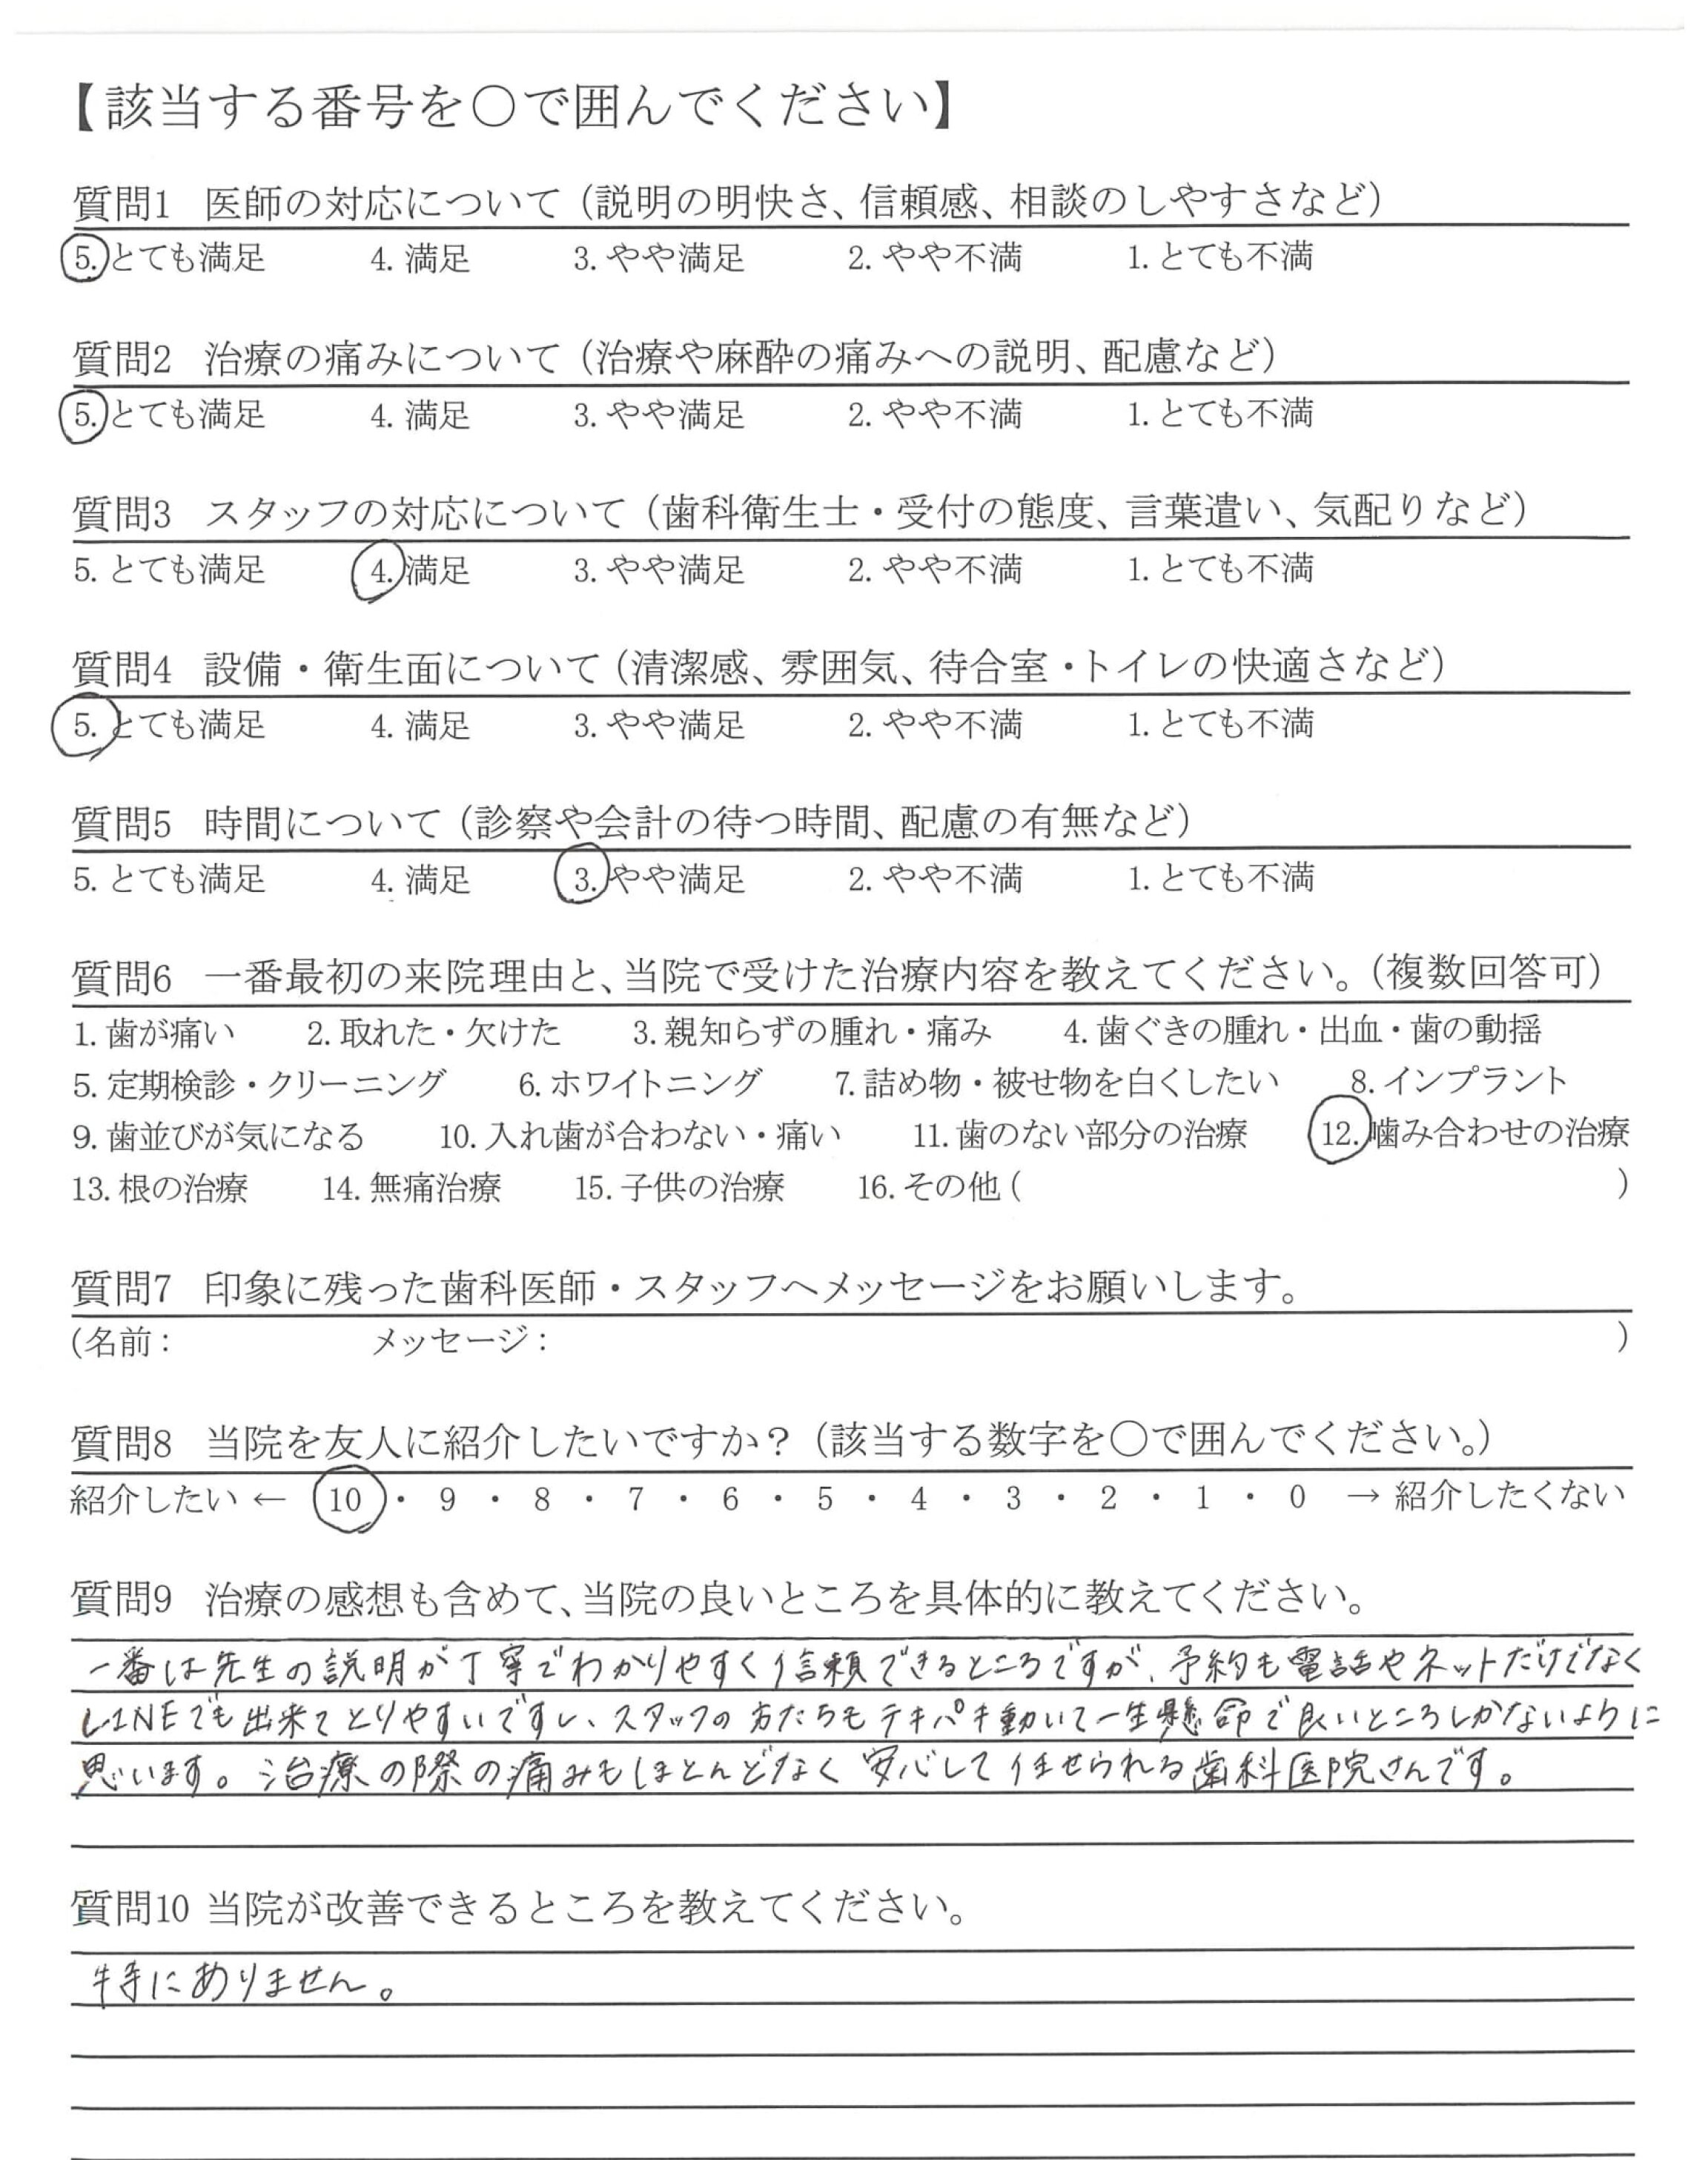 【該当する番号を○で囲んでください】
質問1 医師の対応について（説明の明快さ、信頼感、相談のしやすさなど）
5. とても満足 4. 満足 3. やや満足 2. やや不満 1. とても不満
質問2 治療の痛みについて（治療や麻酔の痛みへの説明、配慮など）
5. とても満足 4. 満足 3. やや満足 2. やや不満 1. とても不満
質問3 スタッフの対応について（歯科衛生士・受付の態度、言葉遣い、気配りなど）
5. とても満足 4. 満足 3. やや満足 2. やや不満 1. とても不満
質問4 設備・衛生面について（清潔感、雰囲気、待合室・トイレの快適さなど）
5. とても満足 4. 満足 3. やや満足 2. やや不満 1. とても不満
質問5 時間について（診察や会計の待つ時間、配慮の有無など）
5. とても満足 4. 満足 3. やや満足 2. やや不満 1. とても不満
質問6 一番最初の来院理由と、当院で受けた治療内容を教えてください。（複数回答可）
1. 歯が痛い 2. 取れた・欠けた 3. 親知らずの腫れ・痛み 4. 歯ぐきの腫れ・出血・歯の動揺
5. 定期検診・クリーニング 6. ホワイトニング 7. 詰め物・被せ物を白くしたい 8. インプラント
9. 歯並びが気になる 10. 入れ歯が合わない・痛い 11. 歯のない部分の治療 12. 噛み合わせの治療
13. 根の治療 14. 無痛治療 15. 子供の治療 16. その他（ ）
質問7 印象に残った歯科医師・スタッフへメッセージをお願いします。
（名前： メッセージ： ）
質問8 当院を友人に紹介したいですか？（該当する数字を○で囲んでください。）
紹介したい ← 10 ・ 9 ・ 8 ・ 7 ・ 6 ・ 5 ・ 4 ・ 3 ・ 2 ・ 1 ・ 0 → 紹介したくない
質問9 治療の感想も含めて、当院の良いところを具体的に教えてください。
一番は先生の説明が丁寧でわかりやすく信頼できるところですが、予約も電話やネットだけでなく
LINEでも出来てとりやすいですし、スタッフの方たちもテキパキ動いて一生懸命で良いところしかないように
思います。治療の際の痛みもほとんどなく安心して任せられる歯科医院さんです。
質問10 当院が改善できるところを教えてください。
特にありません。